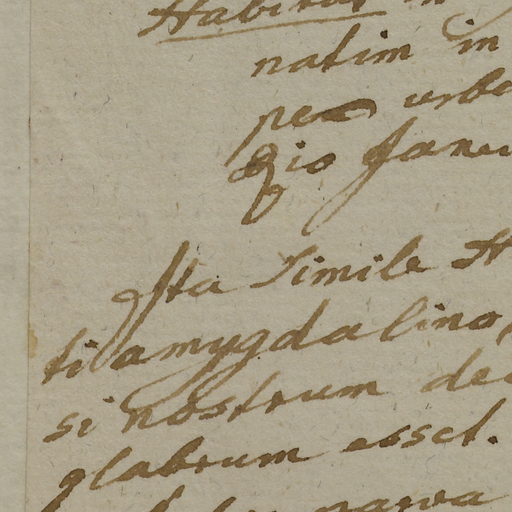 Habitat in
natim in
per urbe
gio Janu
Ita simile H
ti amygdalino,
si nostrum de
glabrum esset.
parva